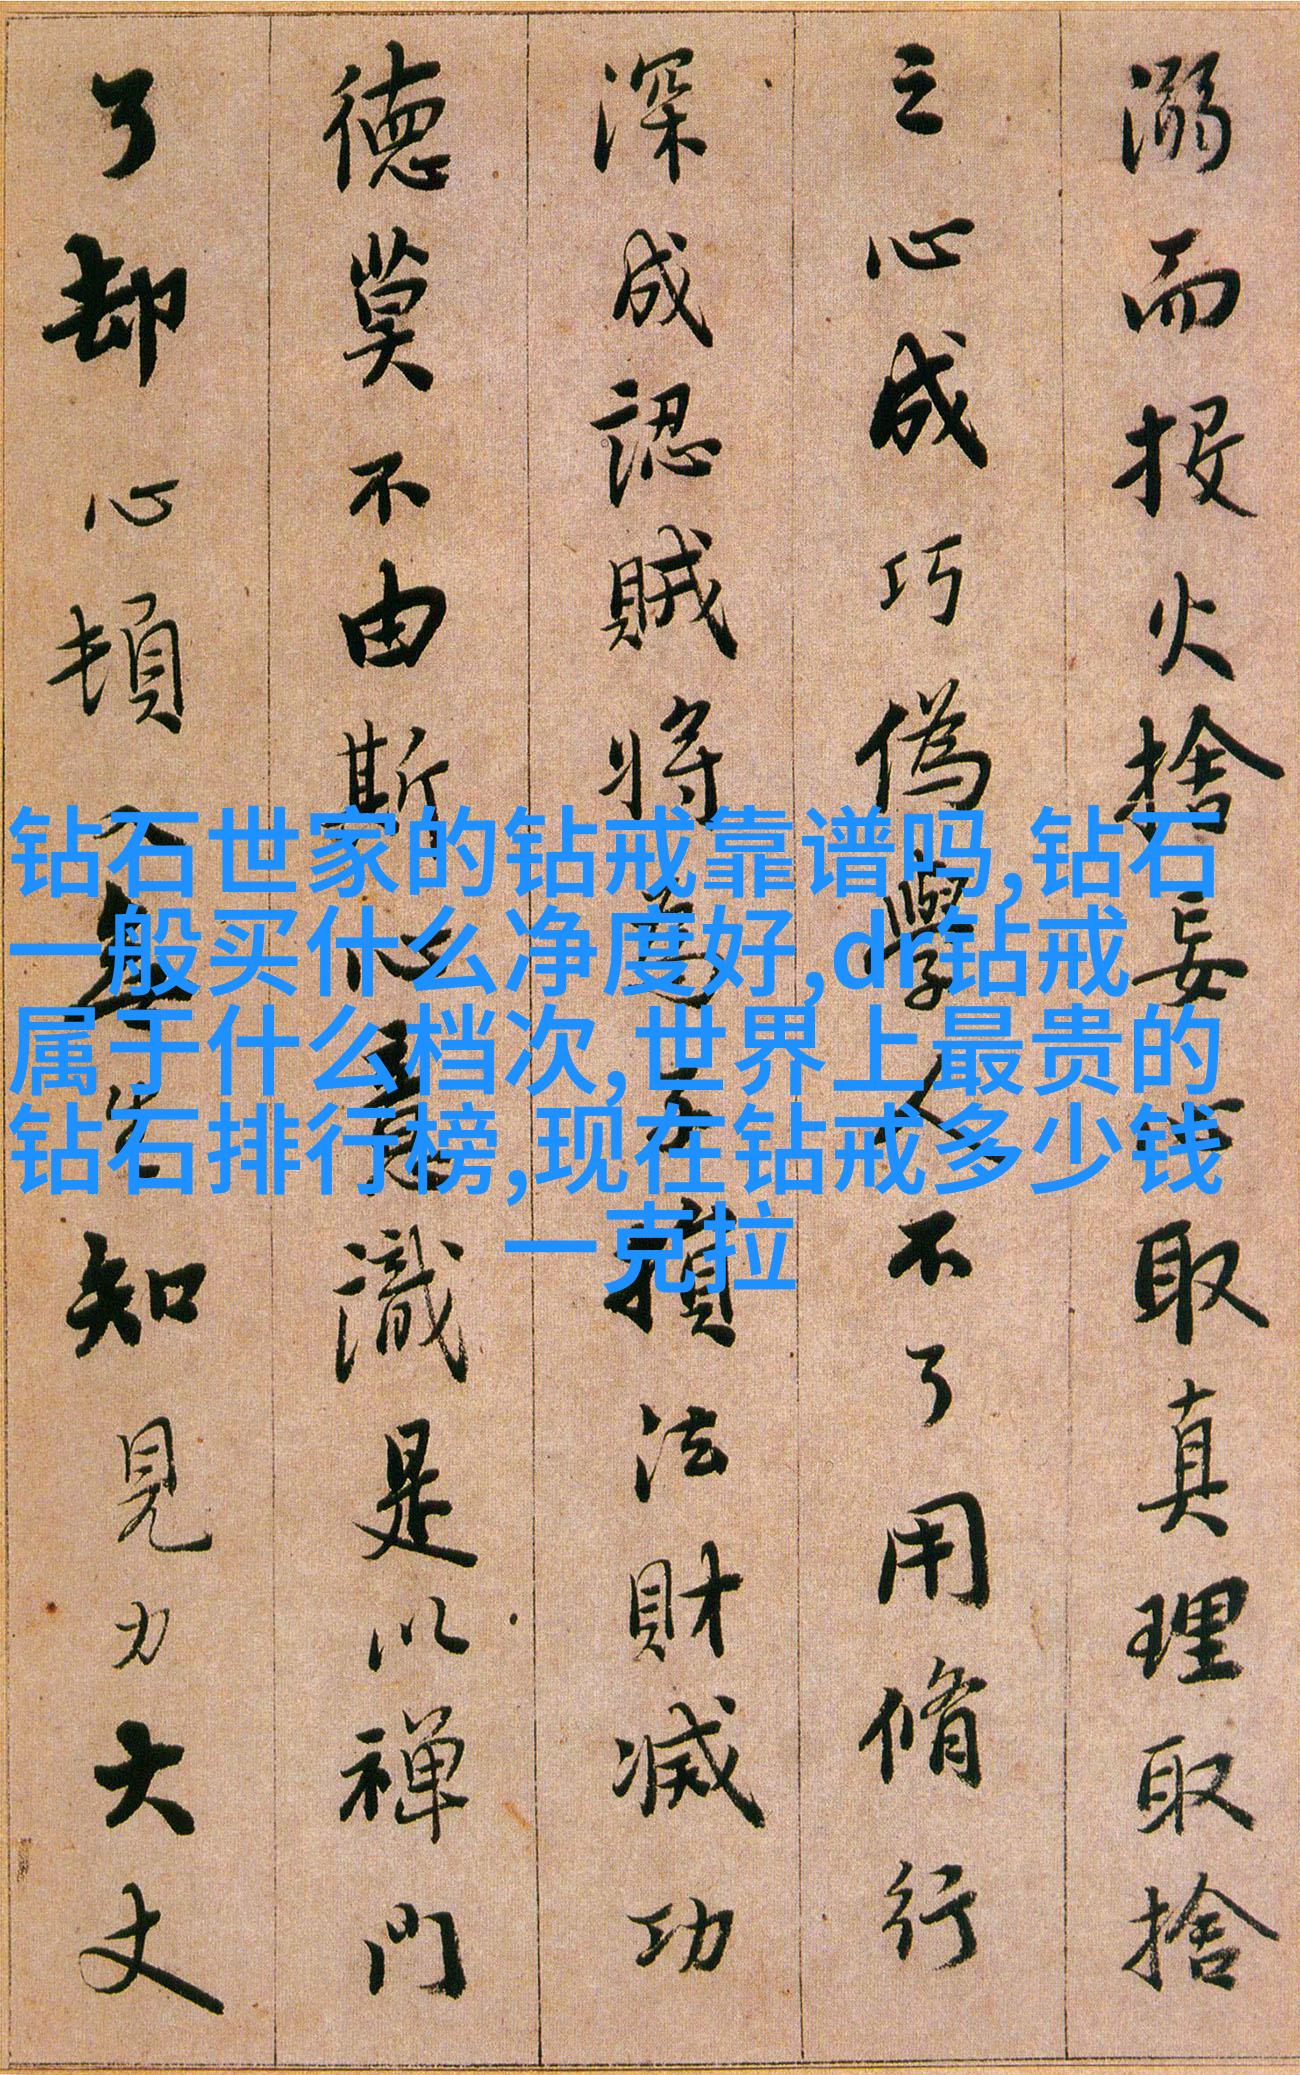 溺而投火捨妄心取真理取捨
之心成巧偽學人不了用脩行
深成認賊將為子損法財滅功
德莫不由斯心意識是以禪門
了却心頓入無生知見力大丈
钻石世家的钻戒靠谱吗,钻石
一般买什么净度好,dr钻戒
属于什么档次,世界上最贵的
钻石排行榜,现在钻戒多少钱
一克拉